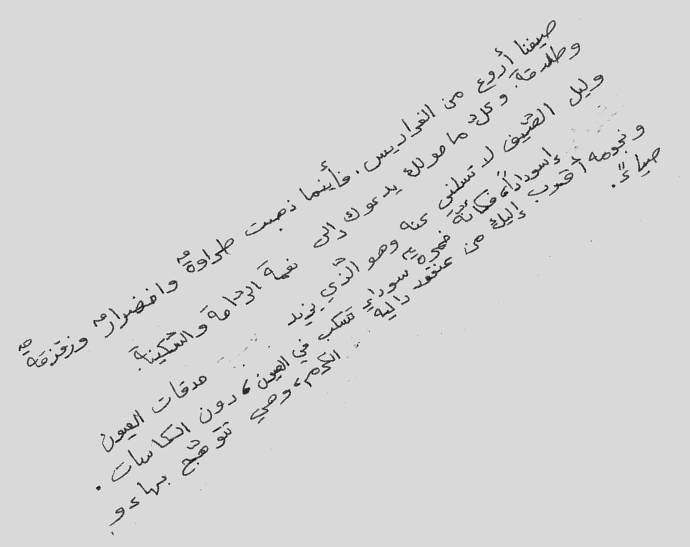 صيفنا أروع من الفراديس. فأينما ذهبت طراوةٌ واخضرارٌ وزقزقةٌ
وطلاقة. وكلّ ما حولك يدعوك إلى نعمة الراحة والسّكينة.
وليل الصّيف لا تسلني عنه وهو الّذي يزيد حدقات العيون
إسوداداً، فكأنّه قهوةٌ سوداءٌ تسكب في العيون، دون الكاسات.
ونجومه أقرب إليك من عنقود دالية الكرم، وهي تتوهّج بهاء و
ضياءً.